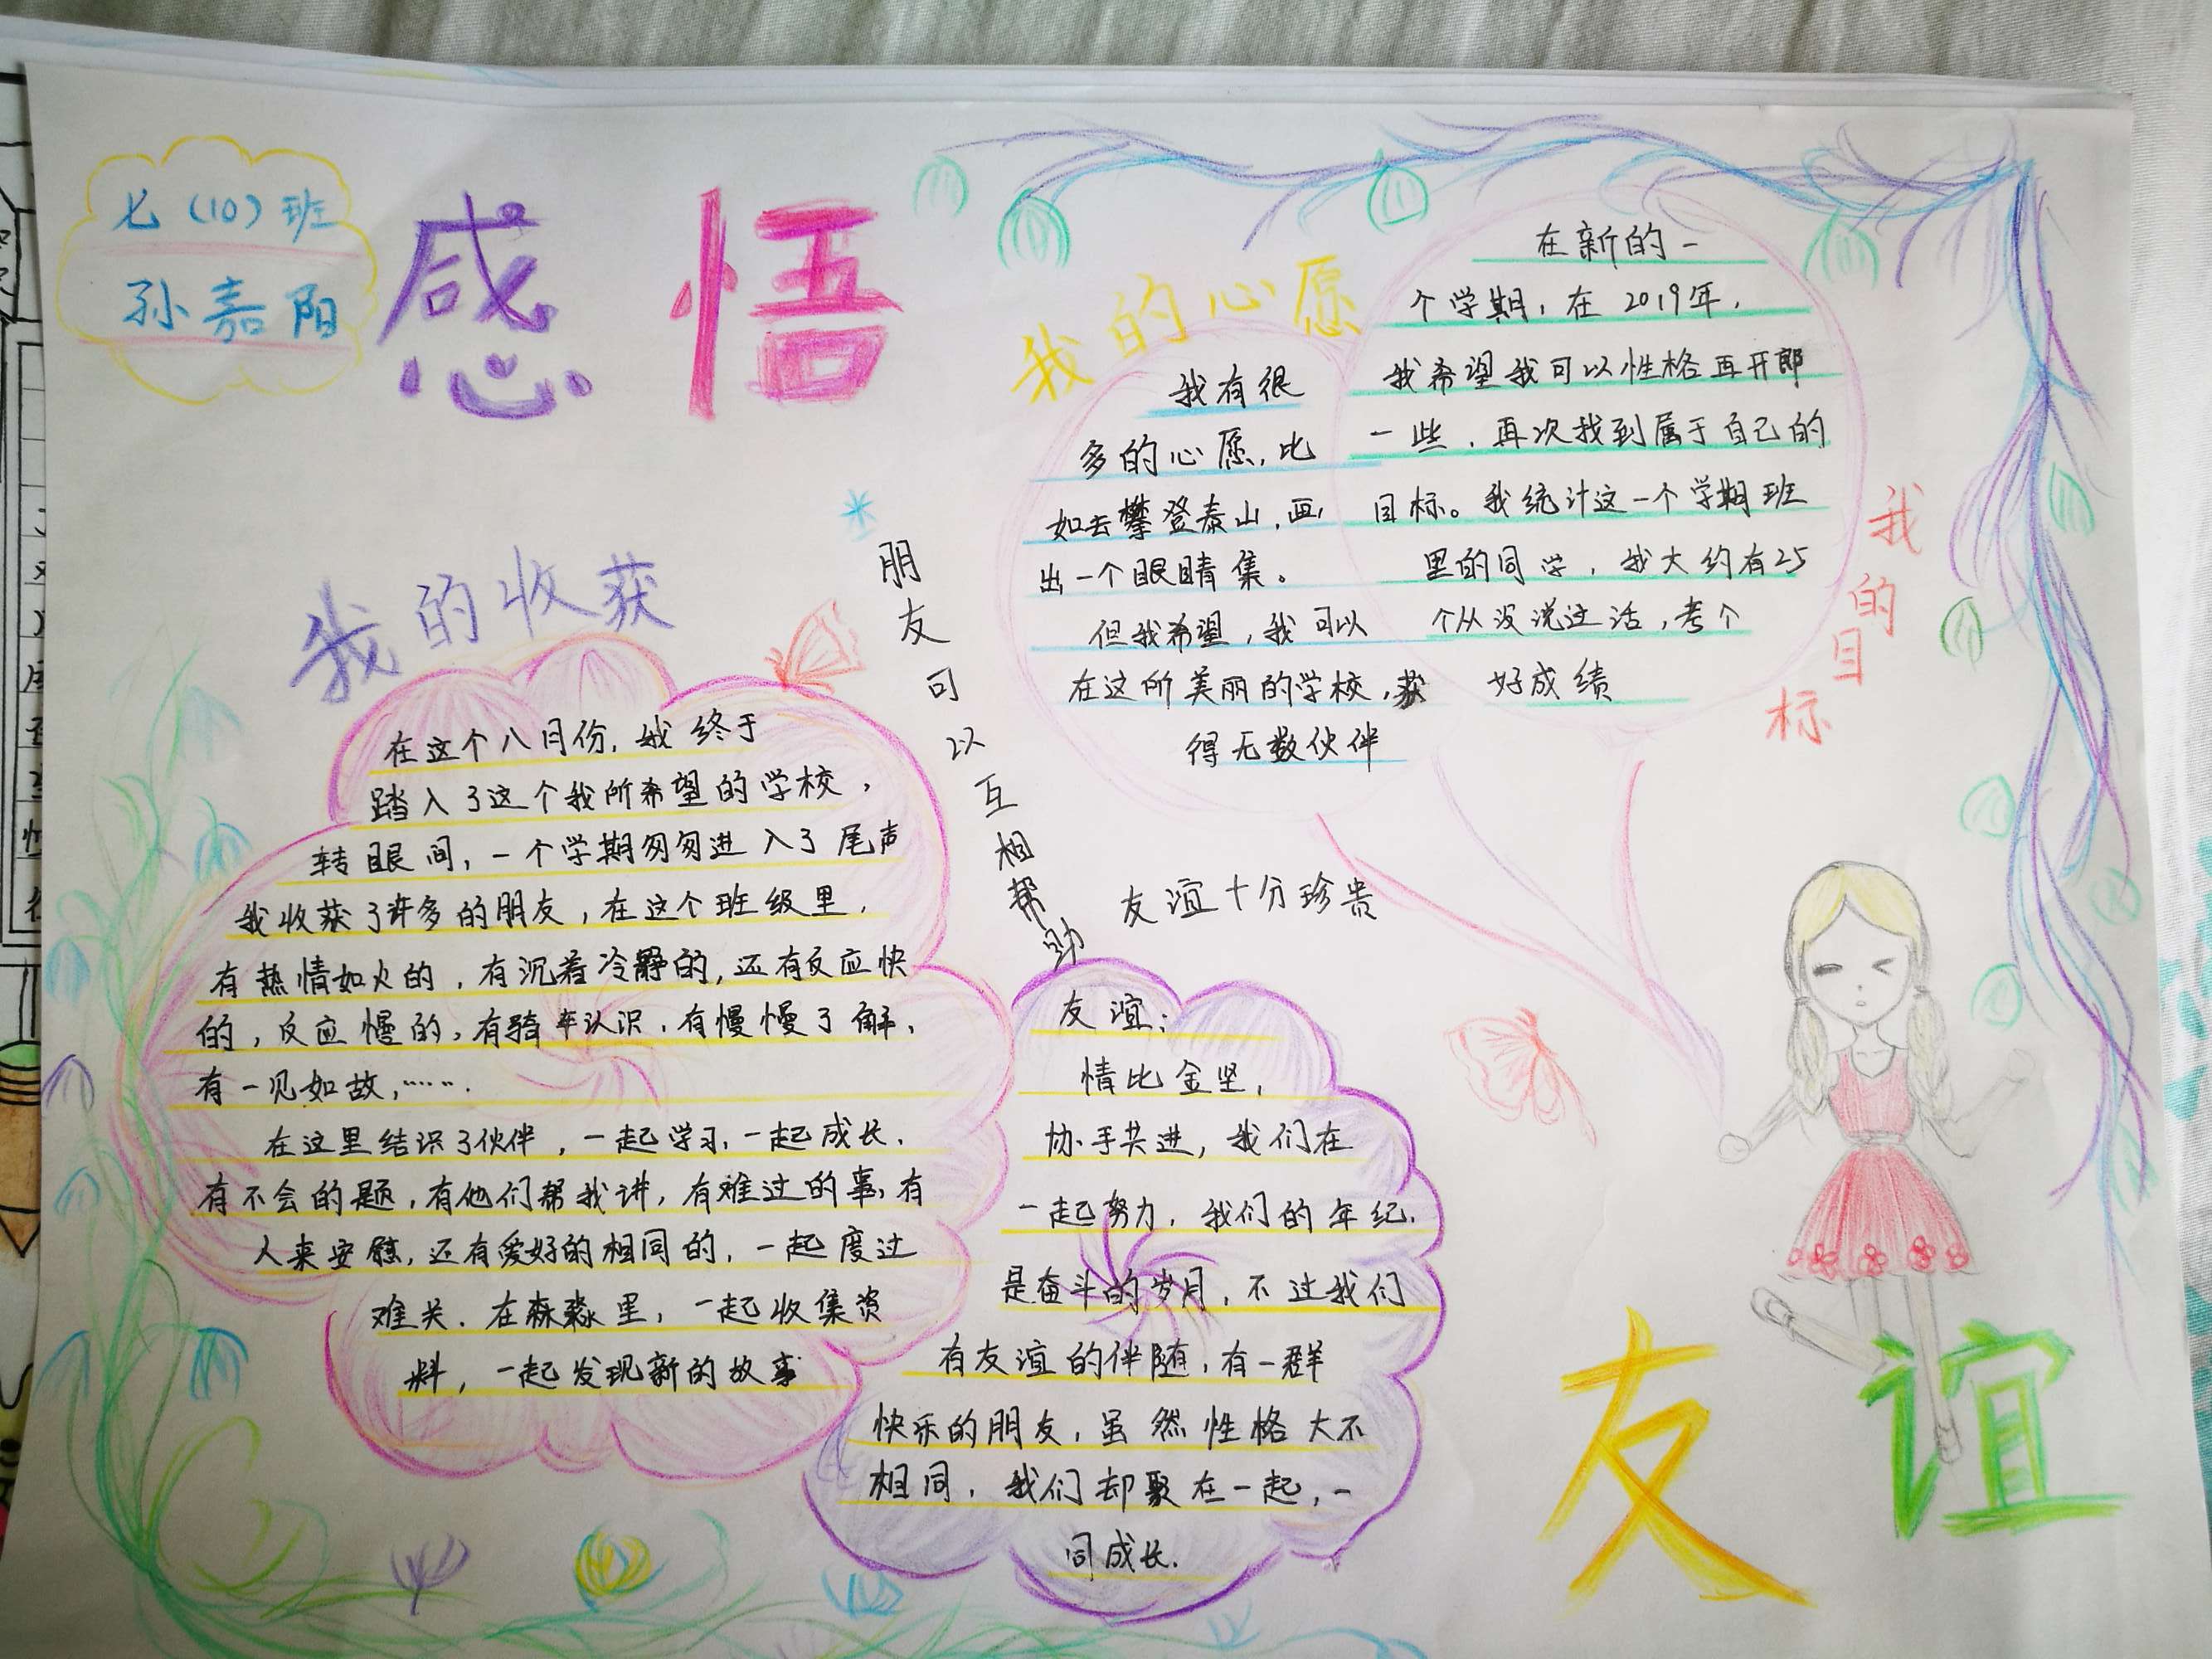 七（10）班
孙嘉阳
感悟
我的收获
在这个八月份，我终于
踏入了这个我所希望的学校，
转眼间，一个学期匆匆进入了尾声
我收获了许多的朋友，在这个班级里，
有热情如火的，有沉着冷静的，还有反应快
的，反应慢的，有骑车认识，有慢慢了解，
有一见如故，……
在这里结识了伙伴，一起学习，一起成长，
有不会的题，有他们帮我讲，有难过的事，有
人来安慰，还有爱好的相同的，一起度过
难关，在森淼里，一起收集资
料，一起发现新的故事
朋友可以互相帮助
我的心愿
我有很
多的心愿，比
如去攀登泰山，画
出一个眼睛集。
但我希望，我可以
在这所美丽的学校，获
得无数伙伴
在新的一
个学期，在2019年，
我希望我可以性格再开郎
一些，再次找到属于自己的
目标。我统计这一个学期班
里的同学，我大约有25
个从没说过话，考个
好成绩
我的目标
友谊十分珍贵
友谊：
情比金坚，
协手共进，我们在
一起努力，我们的年纪，
是奋斗的岁月，不过我们
有友谊的伴随，有一群
快乐的朋友，虽然性格大不
相同，我们却聚在一起，一
同成长.
友谊